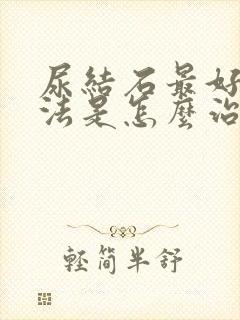 尿結石最好
法是怎麼治
輕簡半舒